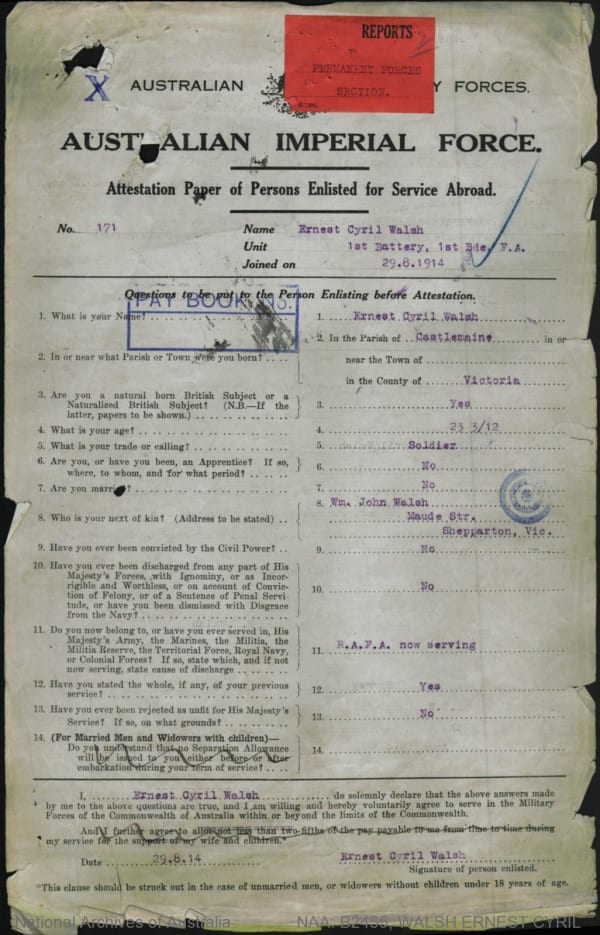 REPORTS
TO
PERMANENT FORCES
SECTION.
X AUSTRALIAN Y FORCES.
AUSTRALIAN IMPERIAL FORCE.
Attestation Paper of Persons Enlisted for Service Abroad.
No. 171 Name Ernest Cyril Walsh
Unit 1st Battery, 1st Bde, F.A.
Joined on 29.8.1914
Questions to be put to the Person Enlisting before Attestation.
PAY BOOK
1. What is your Name? 1. Ernest Cyril Walsh
2. In or near what Parish or Town were you born? 2. In the Parish of Castlemaine in or
near the Town of
in the County of Victoria
3. Are you a natural born British Subject or a
Naturalized British Subject? (N.B.—If the
latter, papers to be shown.) 3. Yes
4. What is your age? 4. 23 3/12
5. What is your trade or calling? 5. Soldier
6. Are you, or have you been, an Apprentice? If so,
where, to whom, and for what period? 6. No
7. Are you married? 7. No
8. Who is your next of kin? (Address to be stated) 8. Wm. John Walsh
Maude Str.
Shepparton, Vic.
9. Have you ever been convicted by the Civil Power? 9. No
10. Have you ever been discharged from any part of His
Majesty's Forces, with Ignominy, or as Incor-
rigible and Worthless, or on account of Convic-
tion of Felony, or of a Sentence of Penal Servi
tude, or have you been dismissed with Disgrace
from the Navy? 10. No
11. Do you now belong to, or have you ever served in, His
Majesty's Army, the Marines, the Militia, the
Militia Reserve, the Territorial Force, Royal Navy,
or Colonial Forces? If so, state which, and if not
now serving, state cause of discharge 11. R.A.F.A. now serving
12. Have you stated the whole, if any, of your previous
service? 12. Yes
13. Have you ever been rejected as unfit for His Majesty's
Service? If so, on what grounds? 13. No
14. (For Married Men and Widowers with children)—
Do you understand that no Separation Allowance
will be issued to you either before or after
embarkation during your term of service? 14.
I, Ernest Cyril Walsh do solemnly declare that the above answers made
by me to the above questions are true, and I am willing and hereby voluntarily agree to serve in the Military
Forces of the Commonwealth of Australia within or beyond the limits of the Commonwealth.
And I further agree to allot not less than two-fifths of the pay payable to me from time to time during
my service for the support of my wife and children.*
Date 29.8.14 Ernest Cyril Walsh
Signature of person enlisted.
*This clause should be struck out in the case of unmarried men, or widowers without children under 18 years of age.
National Archives of Australia NAA: B2455, WALSH ERNEST CYRIL